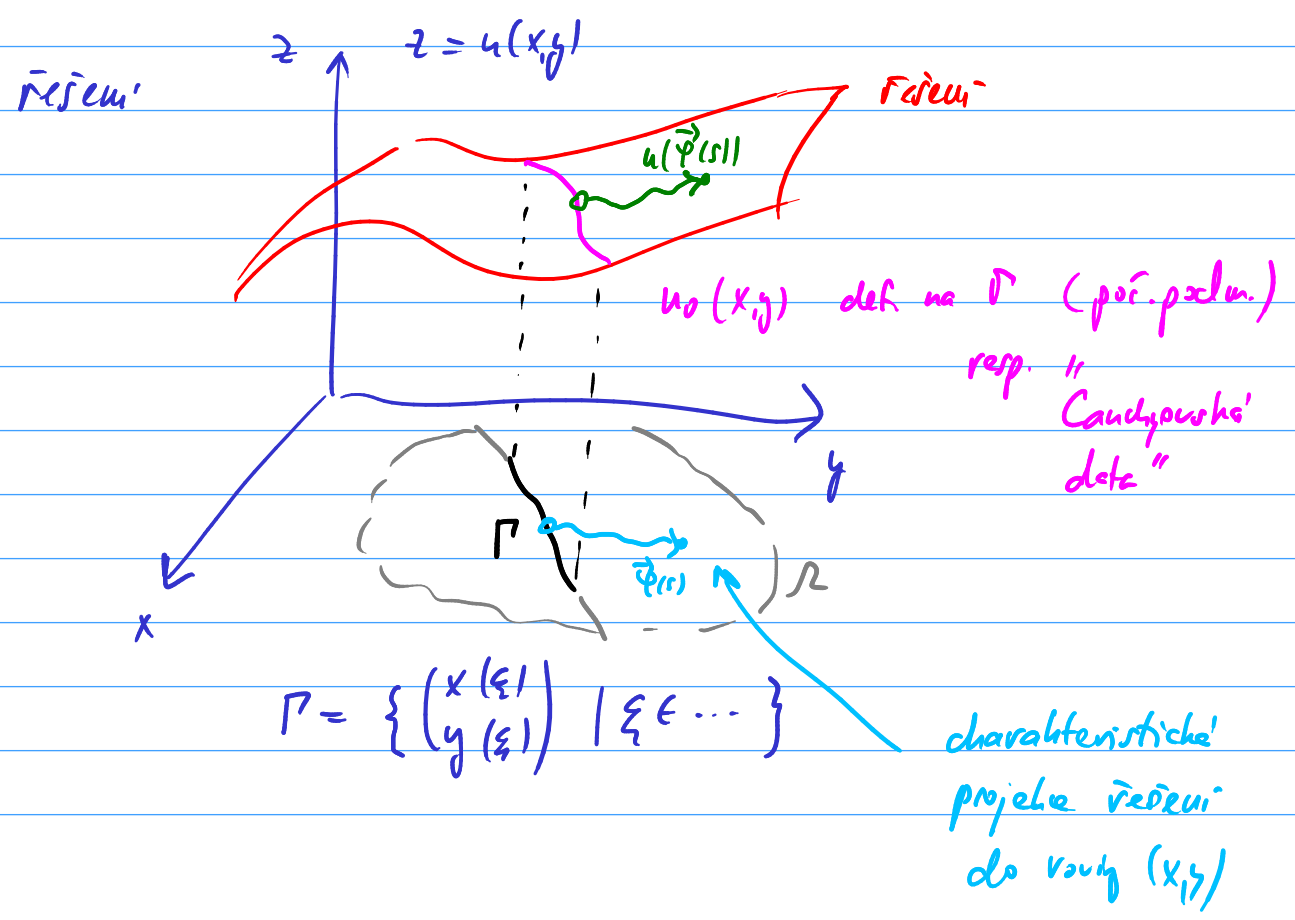 z
z = u(x,y)
řešení
řešení
u(φ⃗(s))
u₀(x,y) def. na Γ (poč. podm.)
resp. "
Cauchyovská
data"
y
Γ
φ⃗(s)
Ω
x
Γ = { ( x(ξ)
y(ξ) ) | ξ ∈ ... }
charakteristická
projekce řešení
do roviny (x,y)